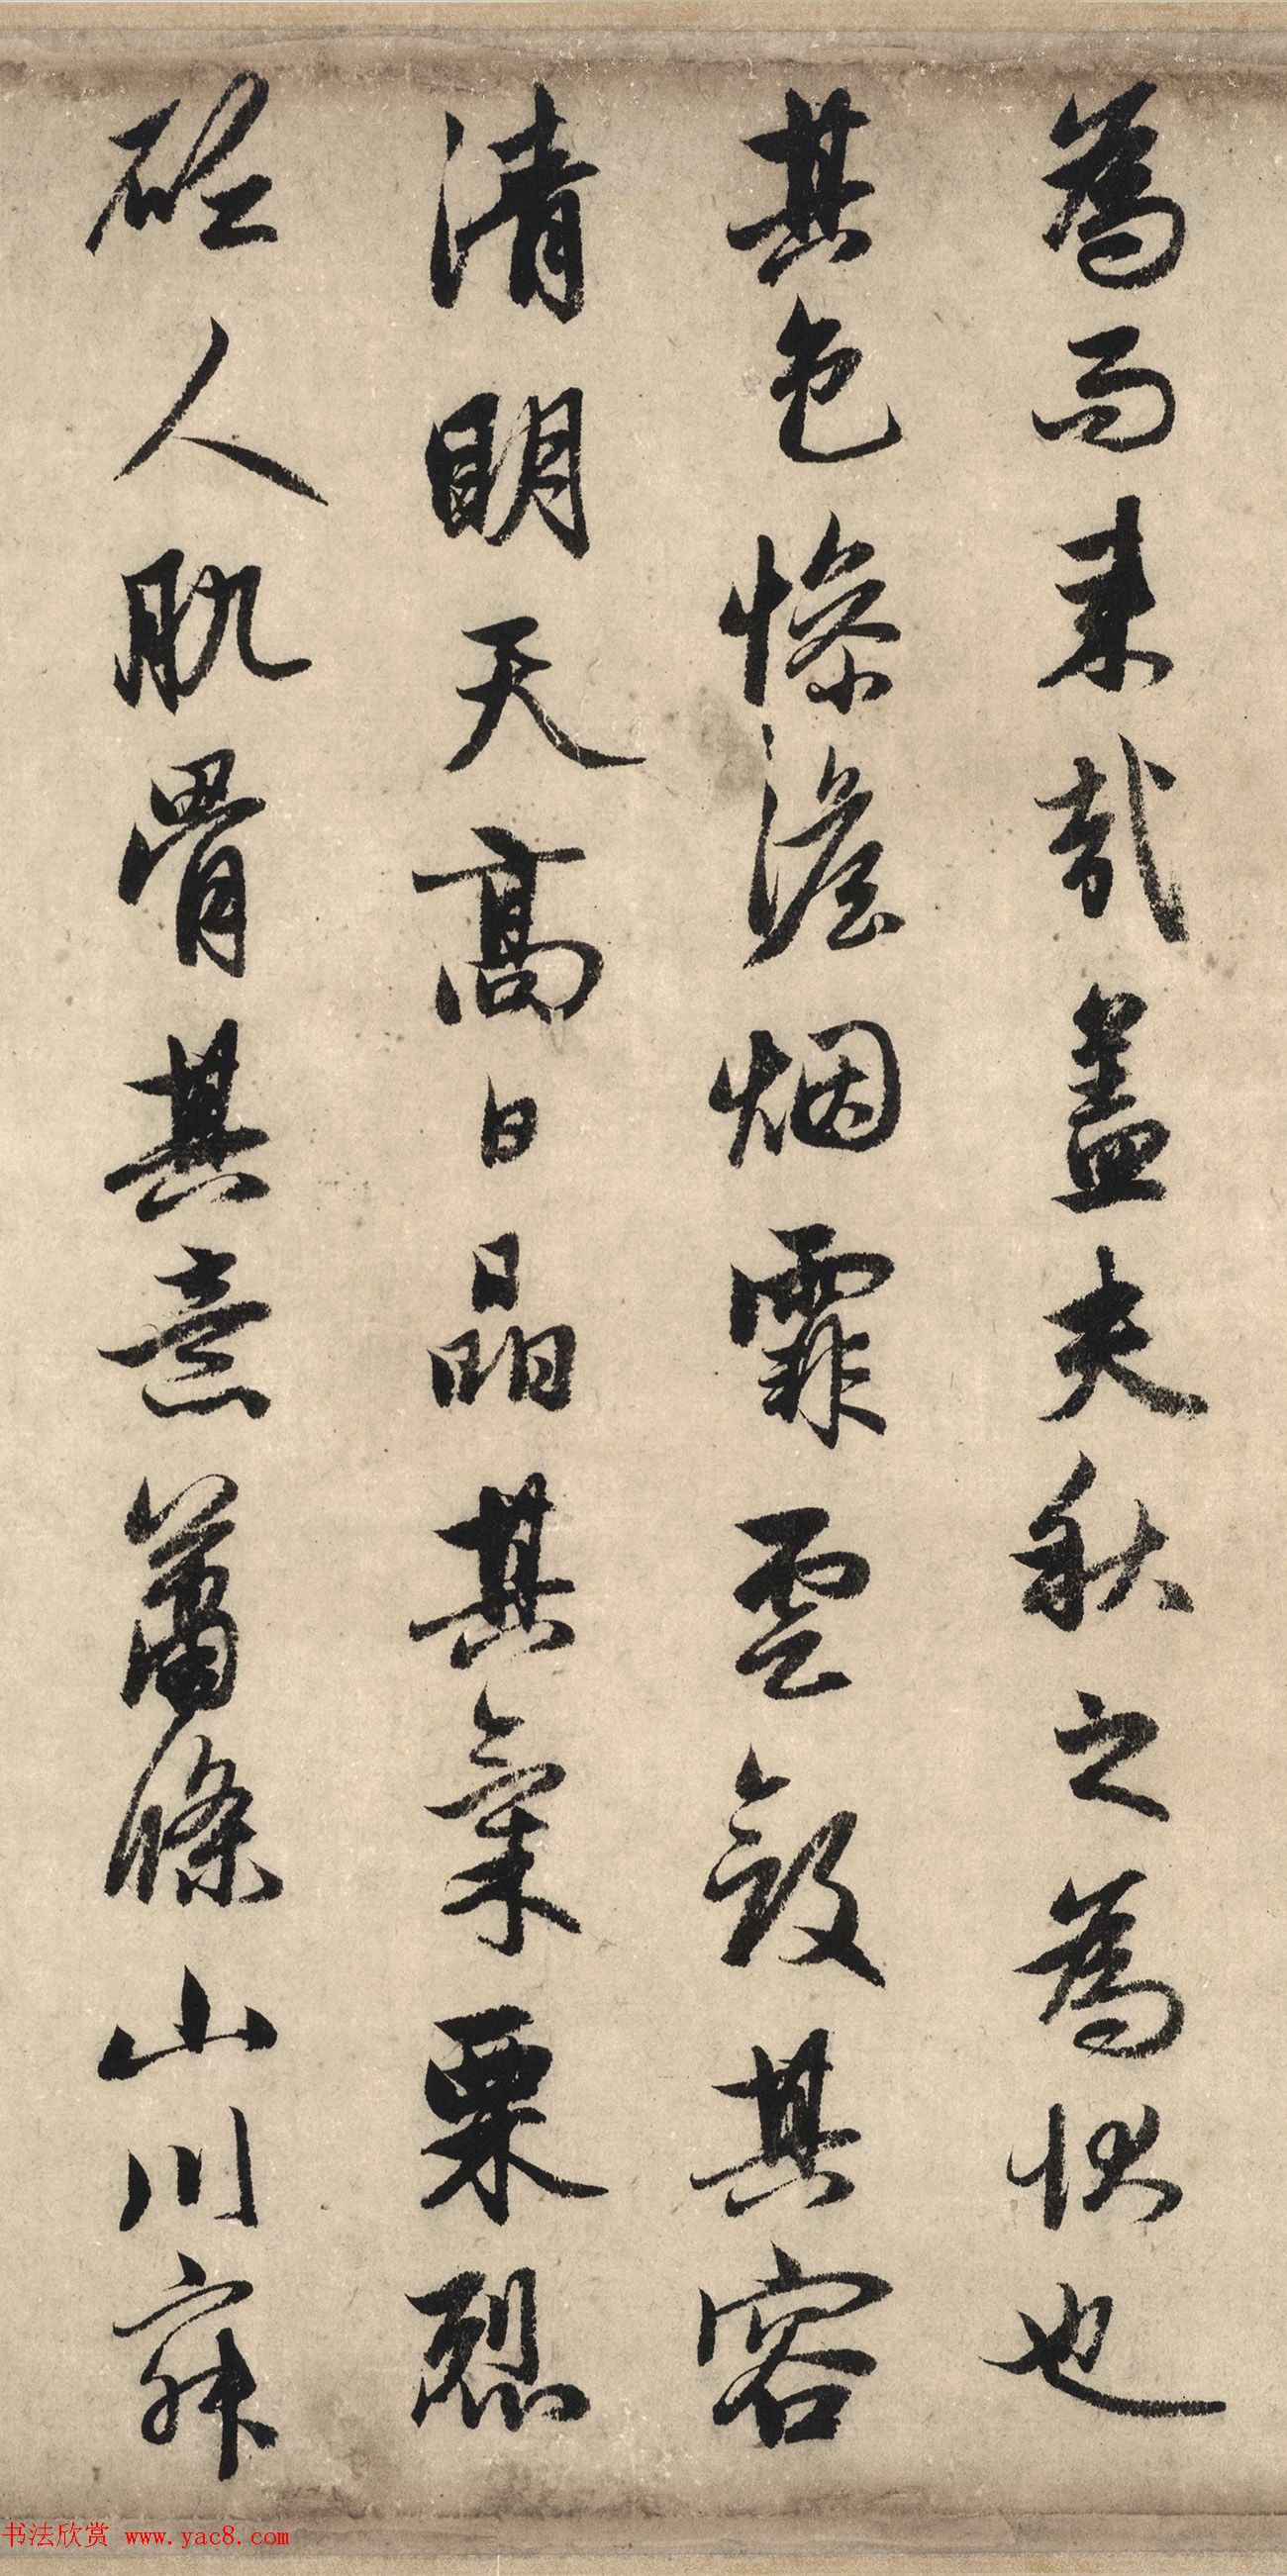 為而来哉盖夫秋之為状也
其色惨澹烟霏雲斂其容
清明天高日晶其氣栗烈
砭人肌骨其意蕭條山川寂
书法欣赏 www.yac8.com